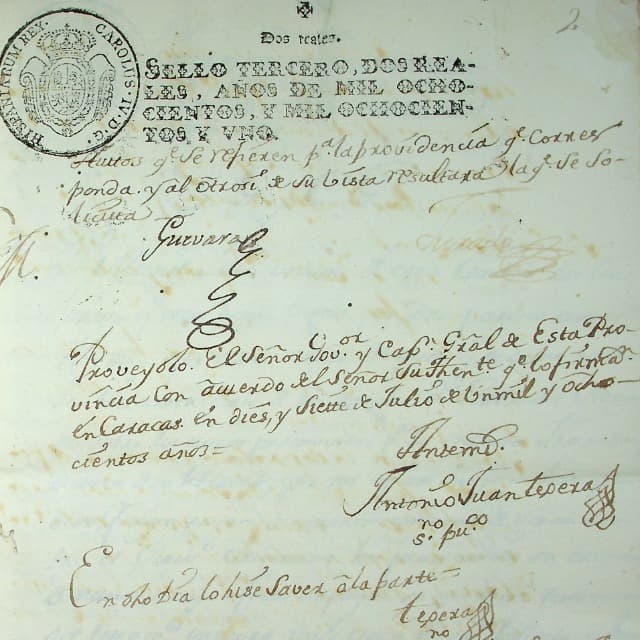 2
Dos reales.
CAROLUS IV D G HISPANIARUM REX
SELLO TERCERO, DOS REA-
LES, AÑOS DE MIL OCHO-
CIENTOS, Y MIL OCHOCIEN-
TOS, Y VNO.
Auttos q.e Se refieren p.a la providencia q.e Corres
ponda. y al otrosi de su vista resultara la q.e se so-
licita
Guevara
Proveyolo. El Señor Gov.or y Cap.n Gral de Esta Pro-
vincia Con acuerdo del Señor Su Thente q.e lo firma
en Caracas en dies, y Siette de Julio de un mil y Ocho-
cientos años=
Antemi.
Antonio Juan tepera
no pu.co
s.
En dho dia lo hise Saver a la parte=
tepera
no